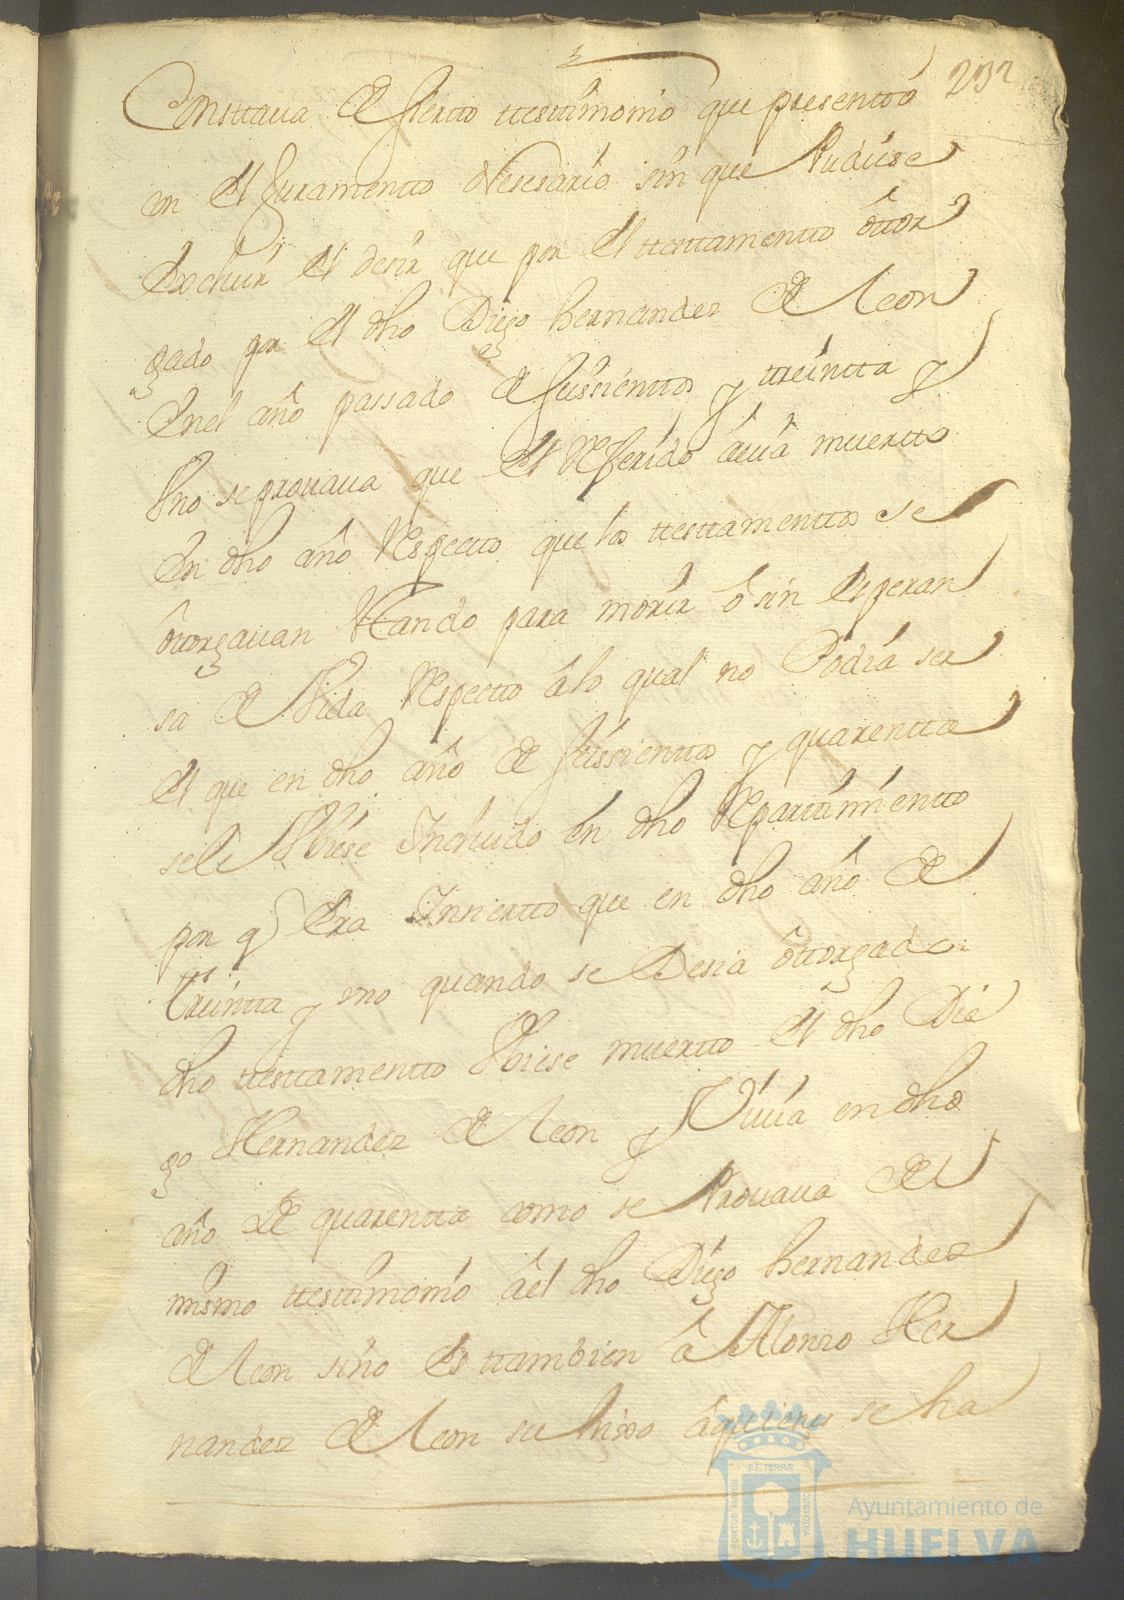 232
Consttaua de siertto ttestimonio que presenttó
con el Juramentto Nesesario sin que Pudiese
Excluir el desir que por el ttesttamentto ôttor
gado por el dho Diego hernandez de leon
Enel año passado de seissienttos y ttreintta y
Vno se prouaua que el Referido âuia muertto
En dho año Respecto que los ttesttamenttos se
ôttorgauan Sttando para morir ô sin Esperan
sa de Vida Respecto âlo qual no Podia ser
el que en dho año de seissienttos y quarentta
sele Vbiese Incluido en dho Repartimientto
por q Era Inciertto que en dho año de
treintta y vno quando se Desia ôttorgado
dho ttesttamentto Vbiese muertto el dho Die
go Hernandez de leon y Viuia en dho
año de quarentta como se Prouaua del
mismo ttestimonio âel dho Diego hernandez
de leon sino es ttambien â Alonzo Her
nandez de leon su hixo âquienes se ha
PORTUS MARIS ET TERRÆ CUSTODIA
Ayuntamiento de
HUELVA